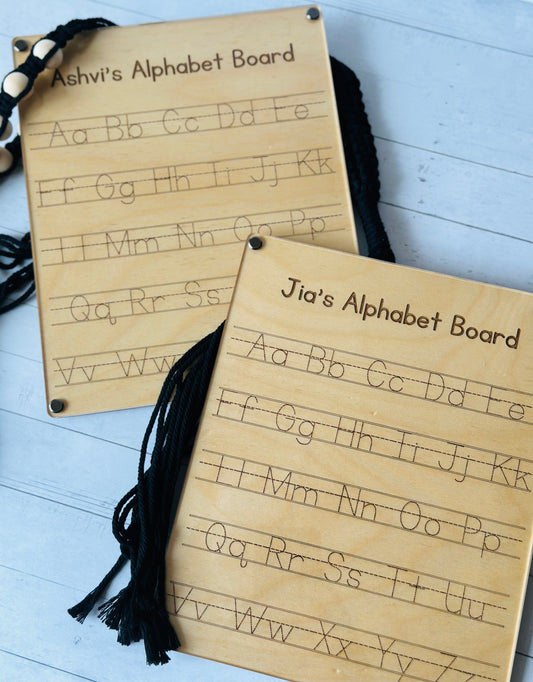 Ashvi's Alphabet Board
Aa Bb Cc Dd Ee
Ff Gg Hh Ii Jj Kk
Ll Mm Nn Oo Pp
Qq Rr Ss
Vv Ww
Jia's Alphabet Board
Aa Bb Cc Dd Ee
Ff Gg Hh Ii Jj Kk
Ll Mm Nn Oo Pp
Qq Rr Ss Tt Uu
Vv Ww Xx Yy Zz